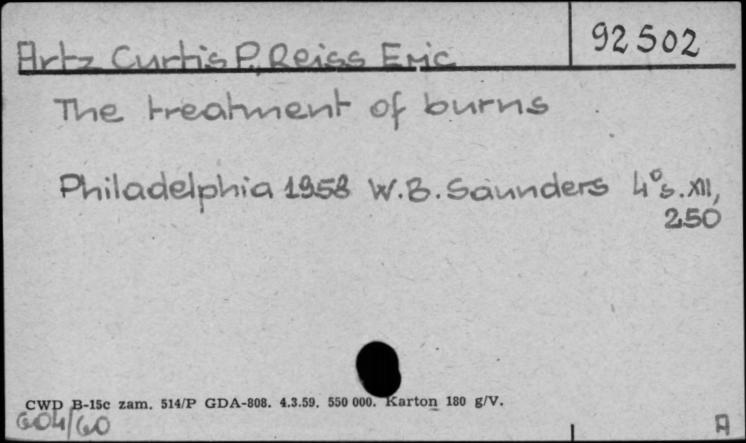 Artz Curtis P., Reiss Eric
92502
The treatment of burns
Philadelphia 1958 W.B. Saunders 4° s. XII,
250
CWD B-15c zam. 514/P GDA-808. 4.3.59. 550 000. Karton 180 g/V.
604/60
A